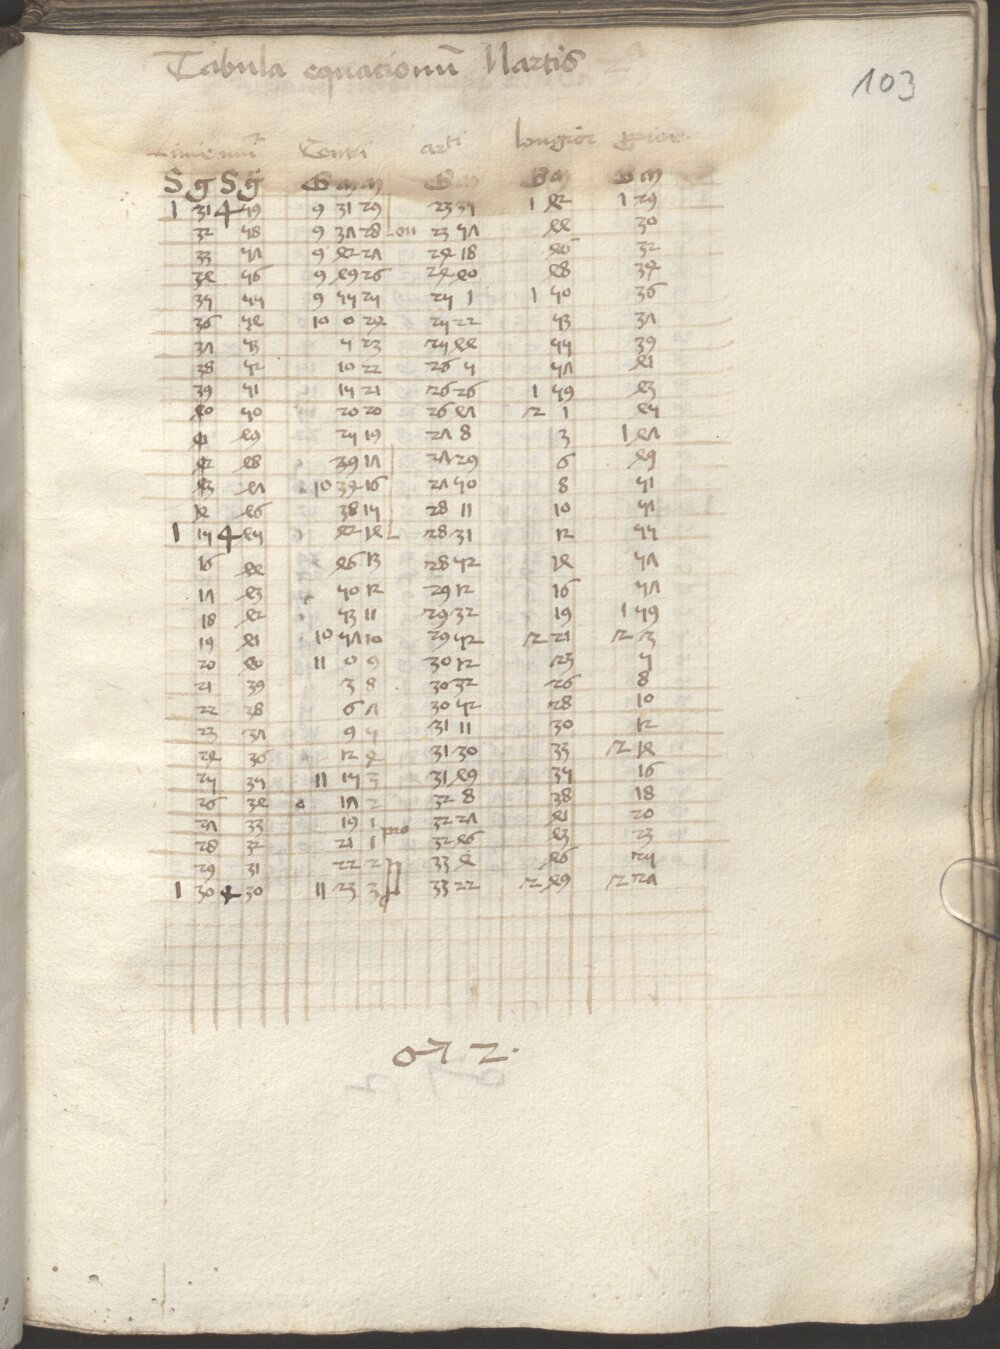 Tabula equacionū Martis
103
Linie nūi Centri arti longior ꝓpior
S g S g G m m G m G m G m
1 31 4 59 9 31 29 23 35 1 42 1 29
32 58 9 37 28 23 57 44 30
33 57 9 42 27 24 18 46 32
34 56 9 49 26 24 40 48 34
35 55 9 55 25 25 1 1 50 36
36 54 10 0 24 25 22 53 37
37 53 5 23 25 44 55 39
38 52 10 22 26 5 57 41
39 51 15 21 26 26 1 59 43
40 50 20 20 26 47 2 1 45
41 49 25 19 27 8 3 1 47
42 48 39 17 27 29 6 49
43 47 10 34 16 27 50 8 51
14 46 38 15 28 11 10 57
1 15 4 45 42 14 28 31 12 55
16 44 46 13 28 52 14 57
17 43 50 12 29 12 16 57
18 42 53 11 29 32 19 1 59
19 41 10 57 10 29 52 2 21 2 3
20 40 11 0 9 30 12 23 5
21 39 3 8 30 32 26 8
22 28 6 7 30 52 28 10
23 37 9 5 31 11 30 12
24 36 12 4 31 30 33 2 14
25 35 11 15 3 31 49 35 16
26 34 17 2 32 8 38 18
27 33 19 1 32 27 41 20
28 32 21 1 pro 32 46 43 23
29 31 22 2 33 4 46 25
1 30 4 30 11 23 3 33 22 2 49 2 27
♂ 2.